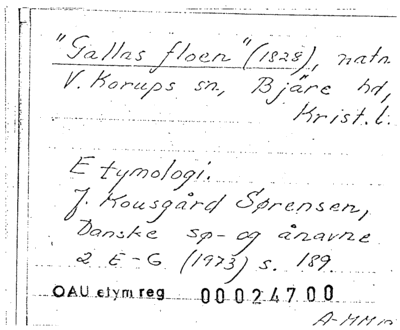 "Gallas floen" (1828), natn
V. Korups sn, Bjäre hd,
Krist. l.
Etymologi.
J. Kousgård Sørensen,
Danske sø- og ånavne
2 E-G (1973) s. 189.
OAU etym reg 00024700